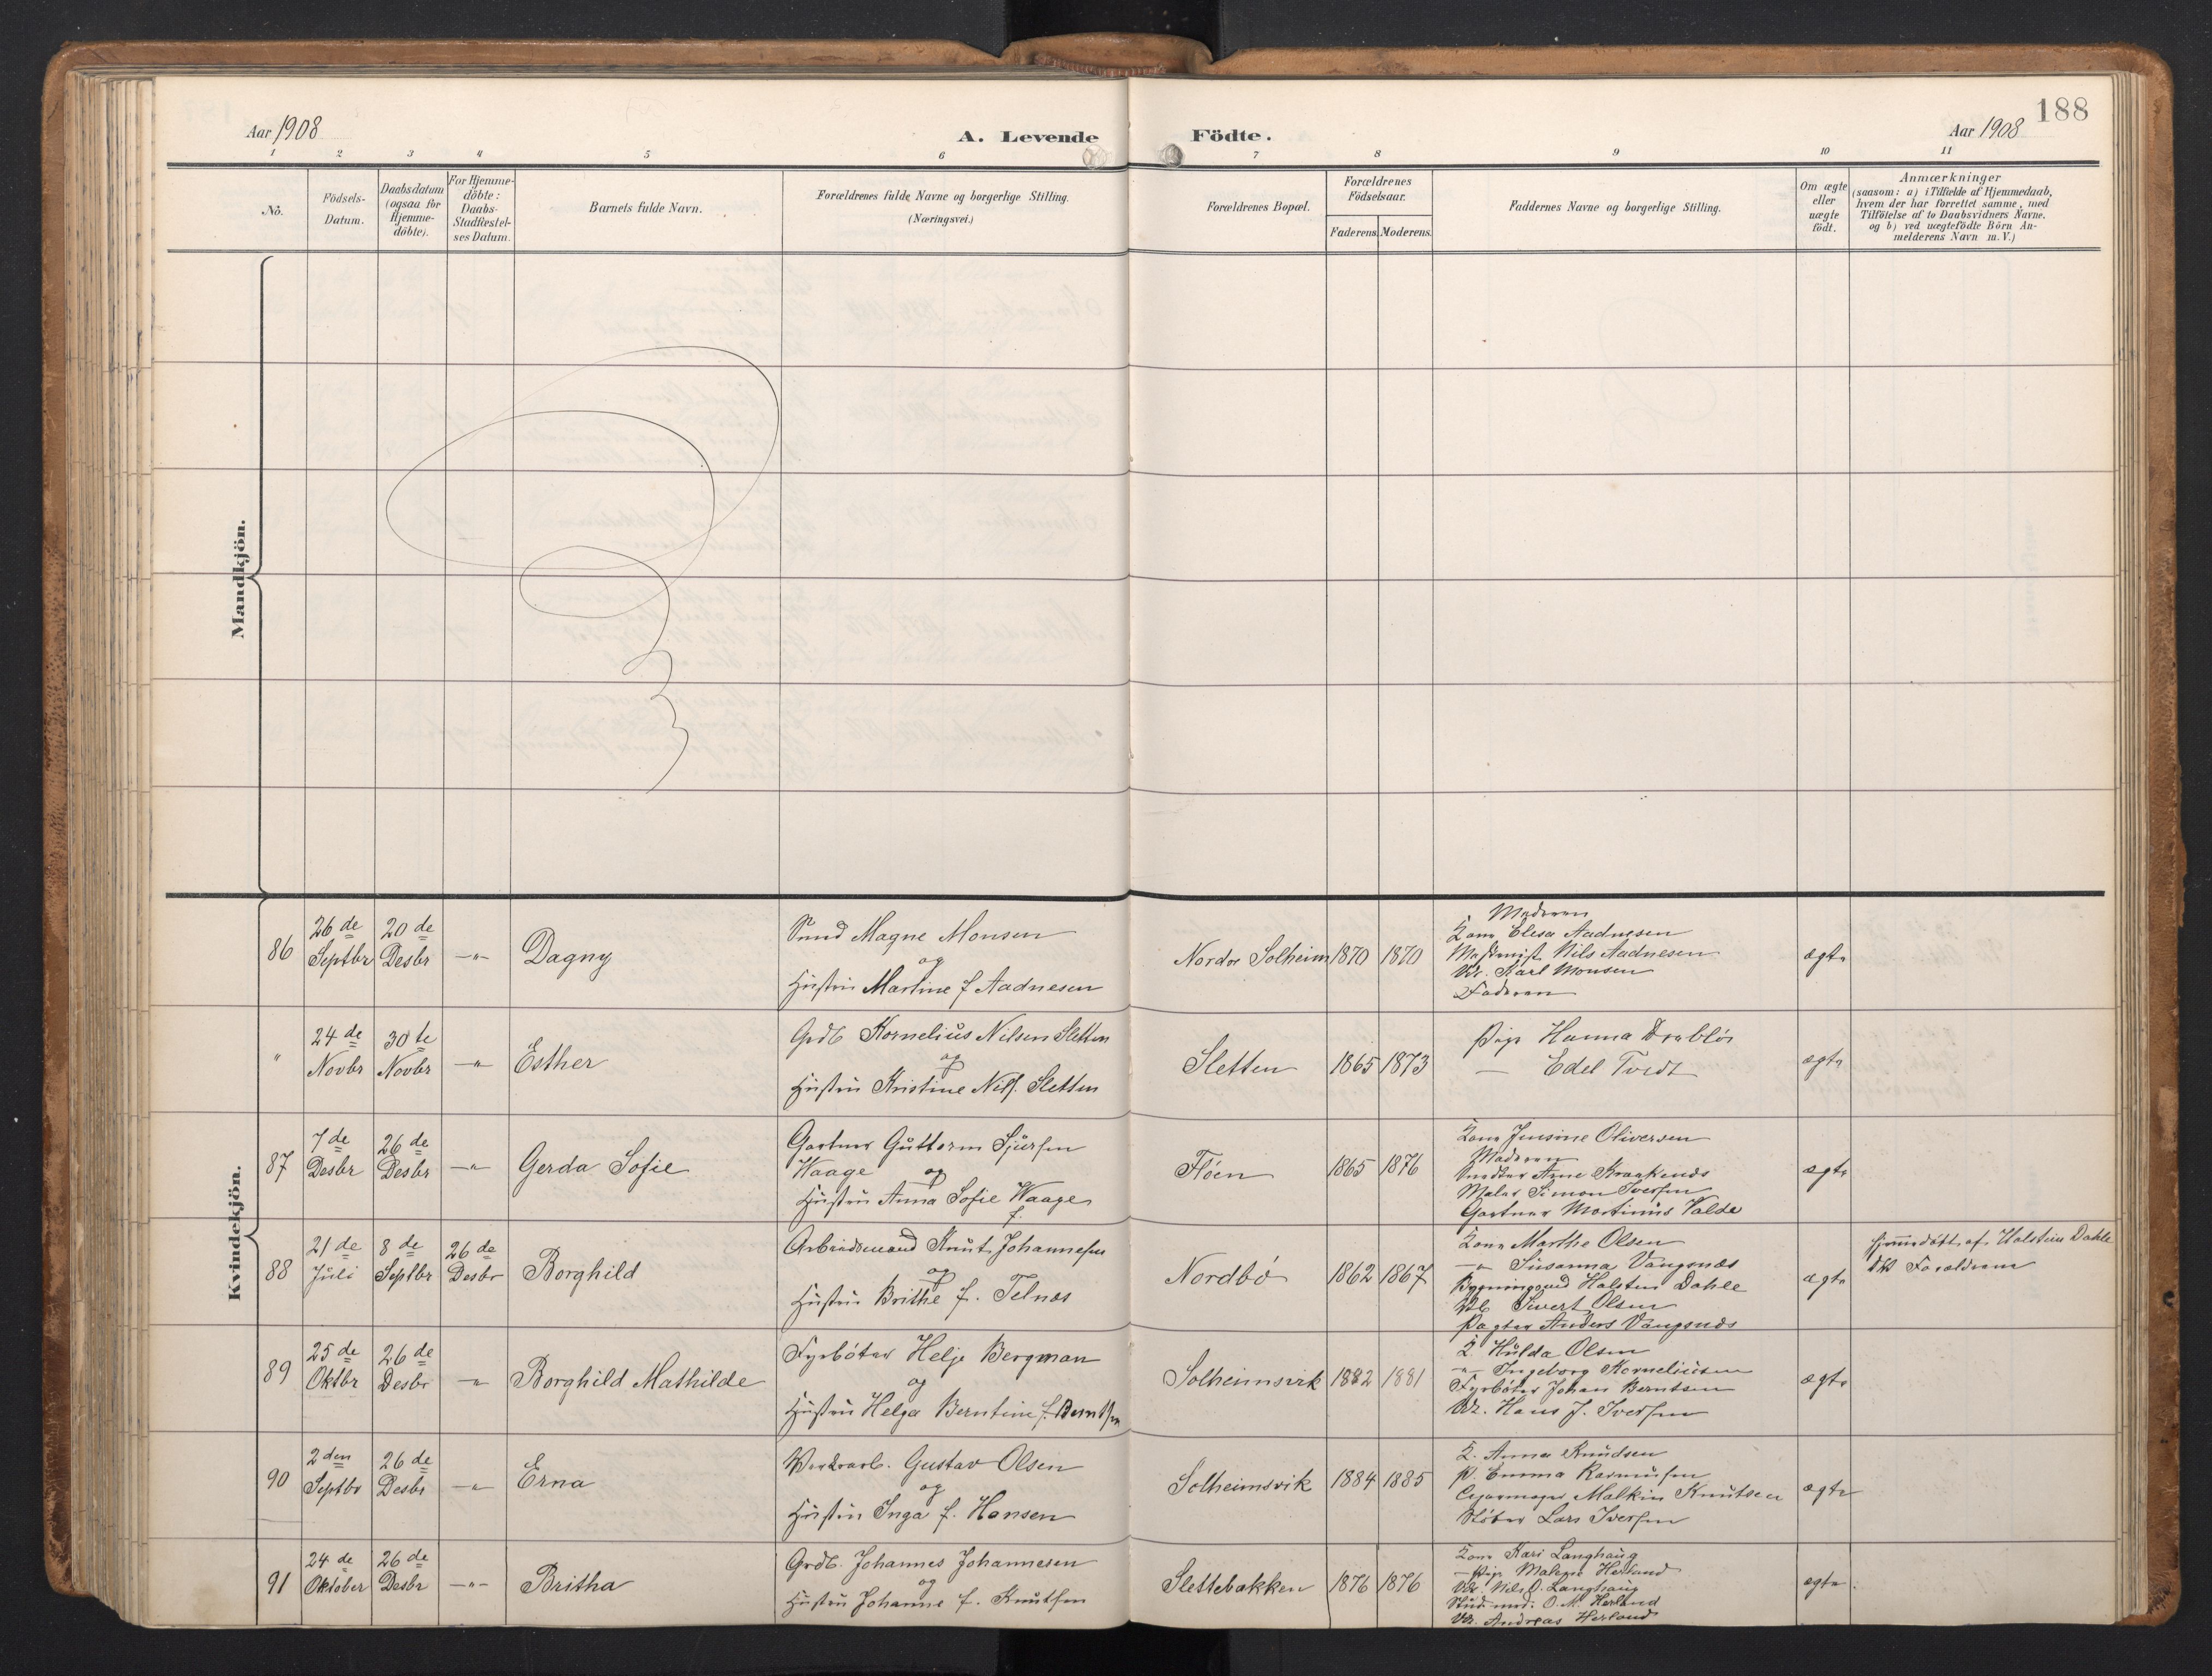 188
Aar 1908
A. Levende Födte.
Aar 1908
1 2 3 4 5 6 7 8 9 10 11
Nô.
Födsels-
Datum.
Daabsdatum
(ogsaa för
Hjemme-
döbte).
For Hjemme-
döbte:
Daabs-
Stadfæstel-
ses Datum.
Barnets fulde Navn.
Forældrenes fulde Navne og borgerlige Stilling.
(Næringsvei.)
Forældrenes Bopæl.
Forældrenes
Födselsaar.
Faderens. Moderens.
Faddernes Navne og borgerlige Stilling.
Om ægte
eller
uægte
födt.
Anmærkninger
(saasom: a) i Tilfælde af Hjemmedaab,
hvem der har forrettet samme, med
Tilföielse af to Daabsvidners Navne.
og b) ved uægtefödte Börn An-
melderens Navn m.V.)
Mandkjön.
Kvindekjön.
86
26 de
Septbr
20 de
Desbr
—"—
Dagny
Smed Magne Monsen
og
Hustru Martine f. Aadnesen
Nordre Solheim
1870
1870
Moderen
Kone Elisa Aadnesen
Maskinist Nils Aadnesen
Karl Monsen
Faderen
ægte
"
24 de
Novbr
30 te
Novbr
—"—
Esther
Grdb. Kornelius Nilsen Sletten
og
Hustru Kristine Nilsd. Sletten
Sletten
1865
1873
Pige Hanna Drabløs
— Edel Tvedt
ægte
87
7 de
Desbr
26 de
Desbr
—"—
Gerda Sofie
Gartner Guttorm Sjursen
Waage
og
Hustru Anna Sofie Waage
f.
Fløen
1865
1876
Kone Jensine Oliversen
Moderen
Arne Kraakenæs
Maler Simon Iversen
Gartner Martinus Valde
ægte
88
21 de
Juli
8 de
Septbr
26 de
Desbr
Borghild
Arbeidsmand Knut Johannesen
og
Hustru Brithe f. Telnæs
Nordbø
1862
1867
Kone Marthe Olsen
—" Susanna Vangsnæs
Halsten Dahle
Sivert Olsen
Anders Vangsnæs
ægte
hjemmedøbt af Halstein Dahle
Forældrene
89
25 de
Oktbr
26 de
Desbr
—"
Borghild Mathilde
Fyrbøter Helje Bergman
og
Hustru Helga Berntine f. Berntsen
Solheimsvik
1882
1881
K. Hulda Olsen
—"— Ingeborg Korneliusen
Fyrbøter Johan Berntsen
Hans J. Iversen
ægte
90
2 den
Septbr
26 de
Desbr
—"—
Erna
Gustav Olsen
og
Hustru Inga f. Hansen
Solheimsvik
1884
1885
K. Anna Knudsen
P. Emma Rasmusen
Malkin Knutsen
Støber Lars Iversen
ægte
91
24 de
Oktober
26 de
Desbr
—"—
Britha
Grdb. Johannes Johannesen
og
Hustru Johanne f. Knutsen
Slettebakken
1876
1876
Kone Kari Langhaug
—Pige Herland
Nils O. Langhaug
Stud. med. O. M. Herland
Andreas Herland
ægte